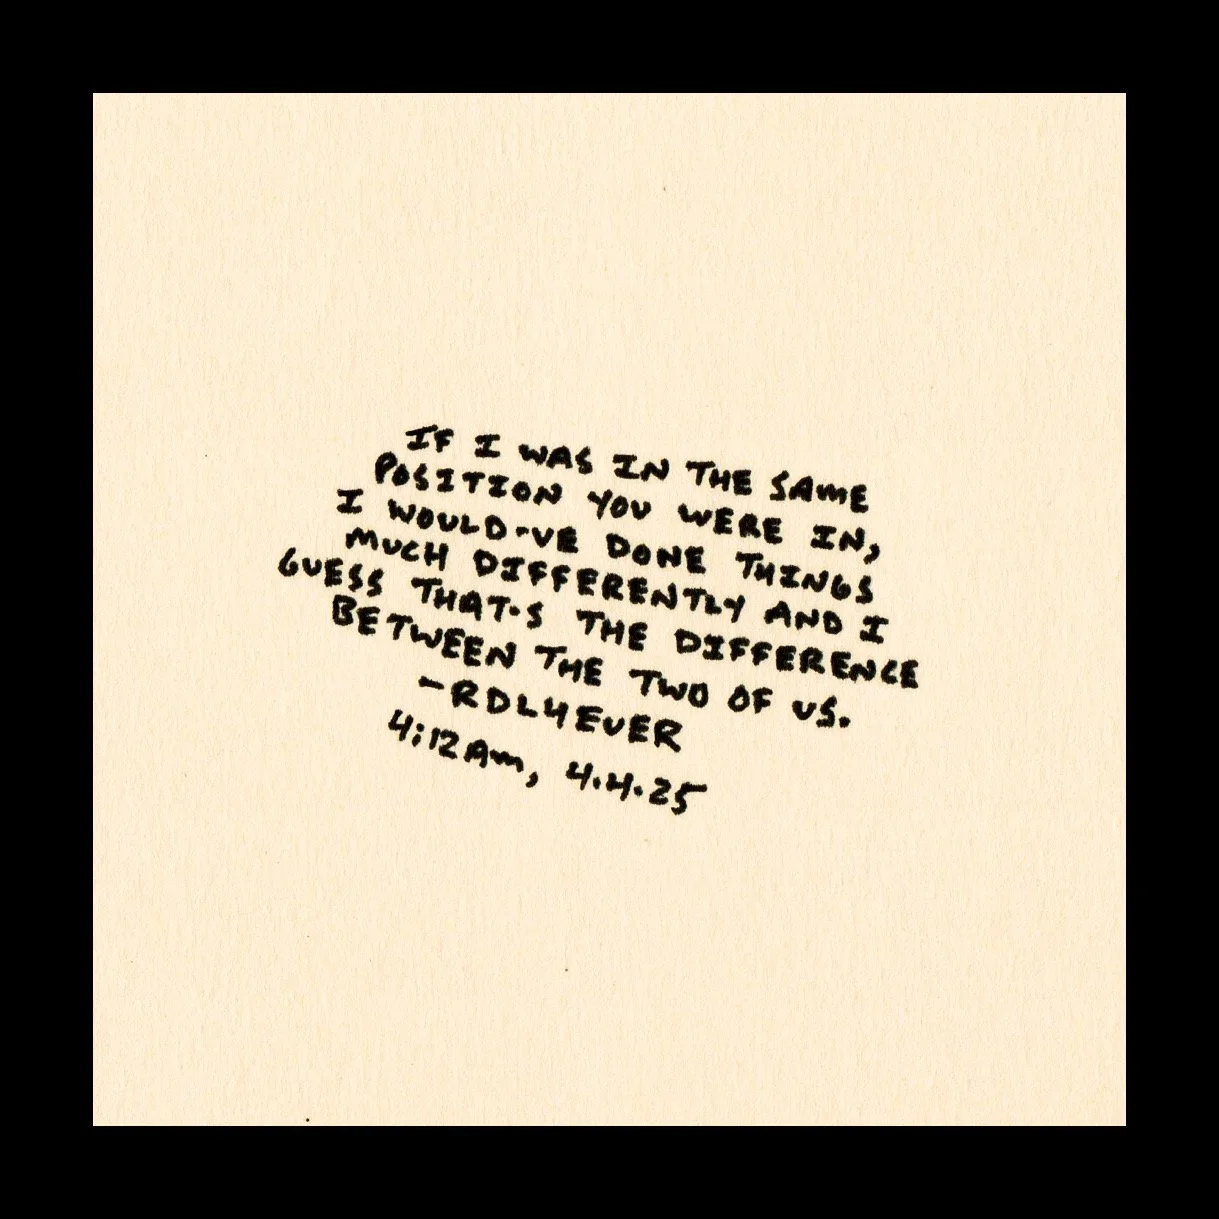 IF I WAS IN THE SAME
POSITION YOU WERE IN,
I WOULD-VE DONE THINGS
MUCH DIFFERENTLY AND I
GUESS THAT-S THE DIFFERENCE
BETWEEN THE TWO OF US.
-RDL4EVER
4:12AM, 4.4.25